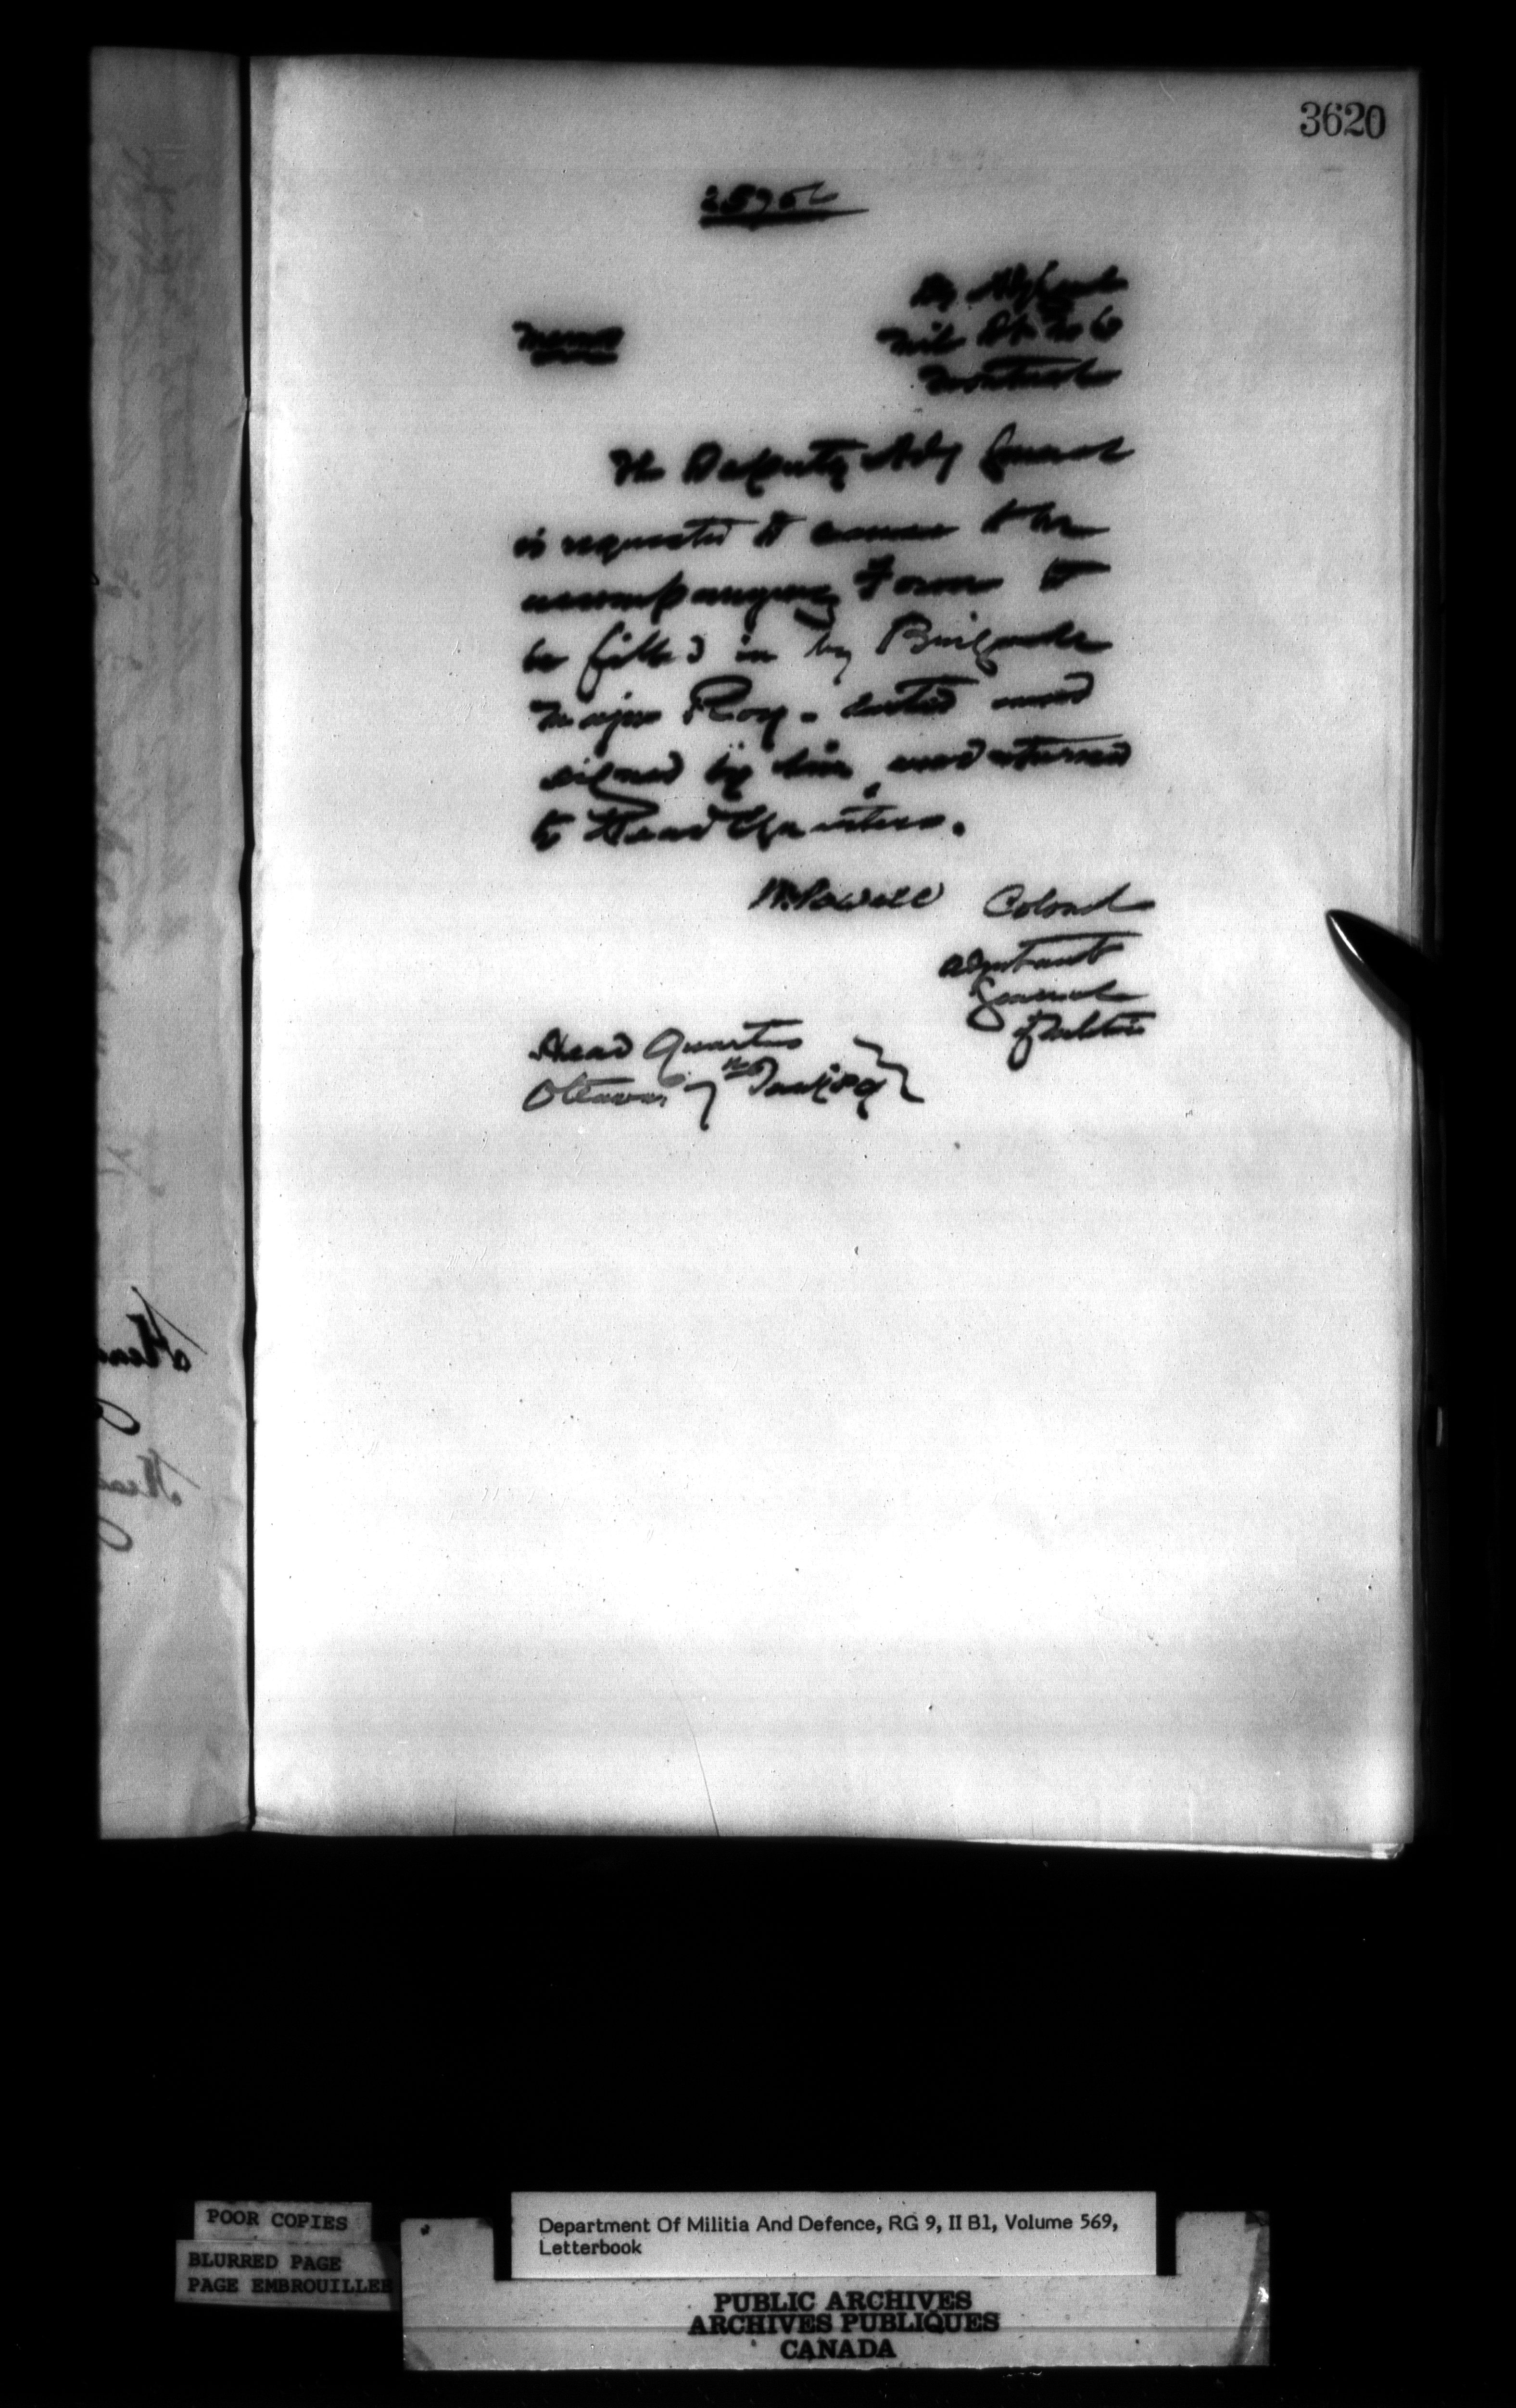 3620
Memo
Dy Adj Genl
Mil Dt No 6
Montreal
The Deputy Adj General
is requested to cause the
accompanying Form to
be filled in by Brigade
Major Roy - dated and
signed by him, and returned
to Head Quarters.
W. Powell Colonel
Adjutant
General
of Militia
Head Quarters
Ottawa
POOR COPIES
BLURRED PAGE
PAGE EMBROUILLEE
Department Of Militia And Defence, RG 9, II B1, Volume 569,
Letterbook
PUBLIC ARCHIVES
ARCHIVES PUBLIQUES
CANADA